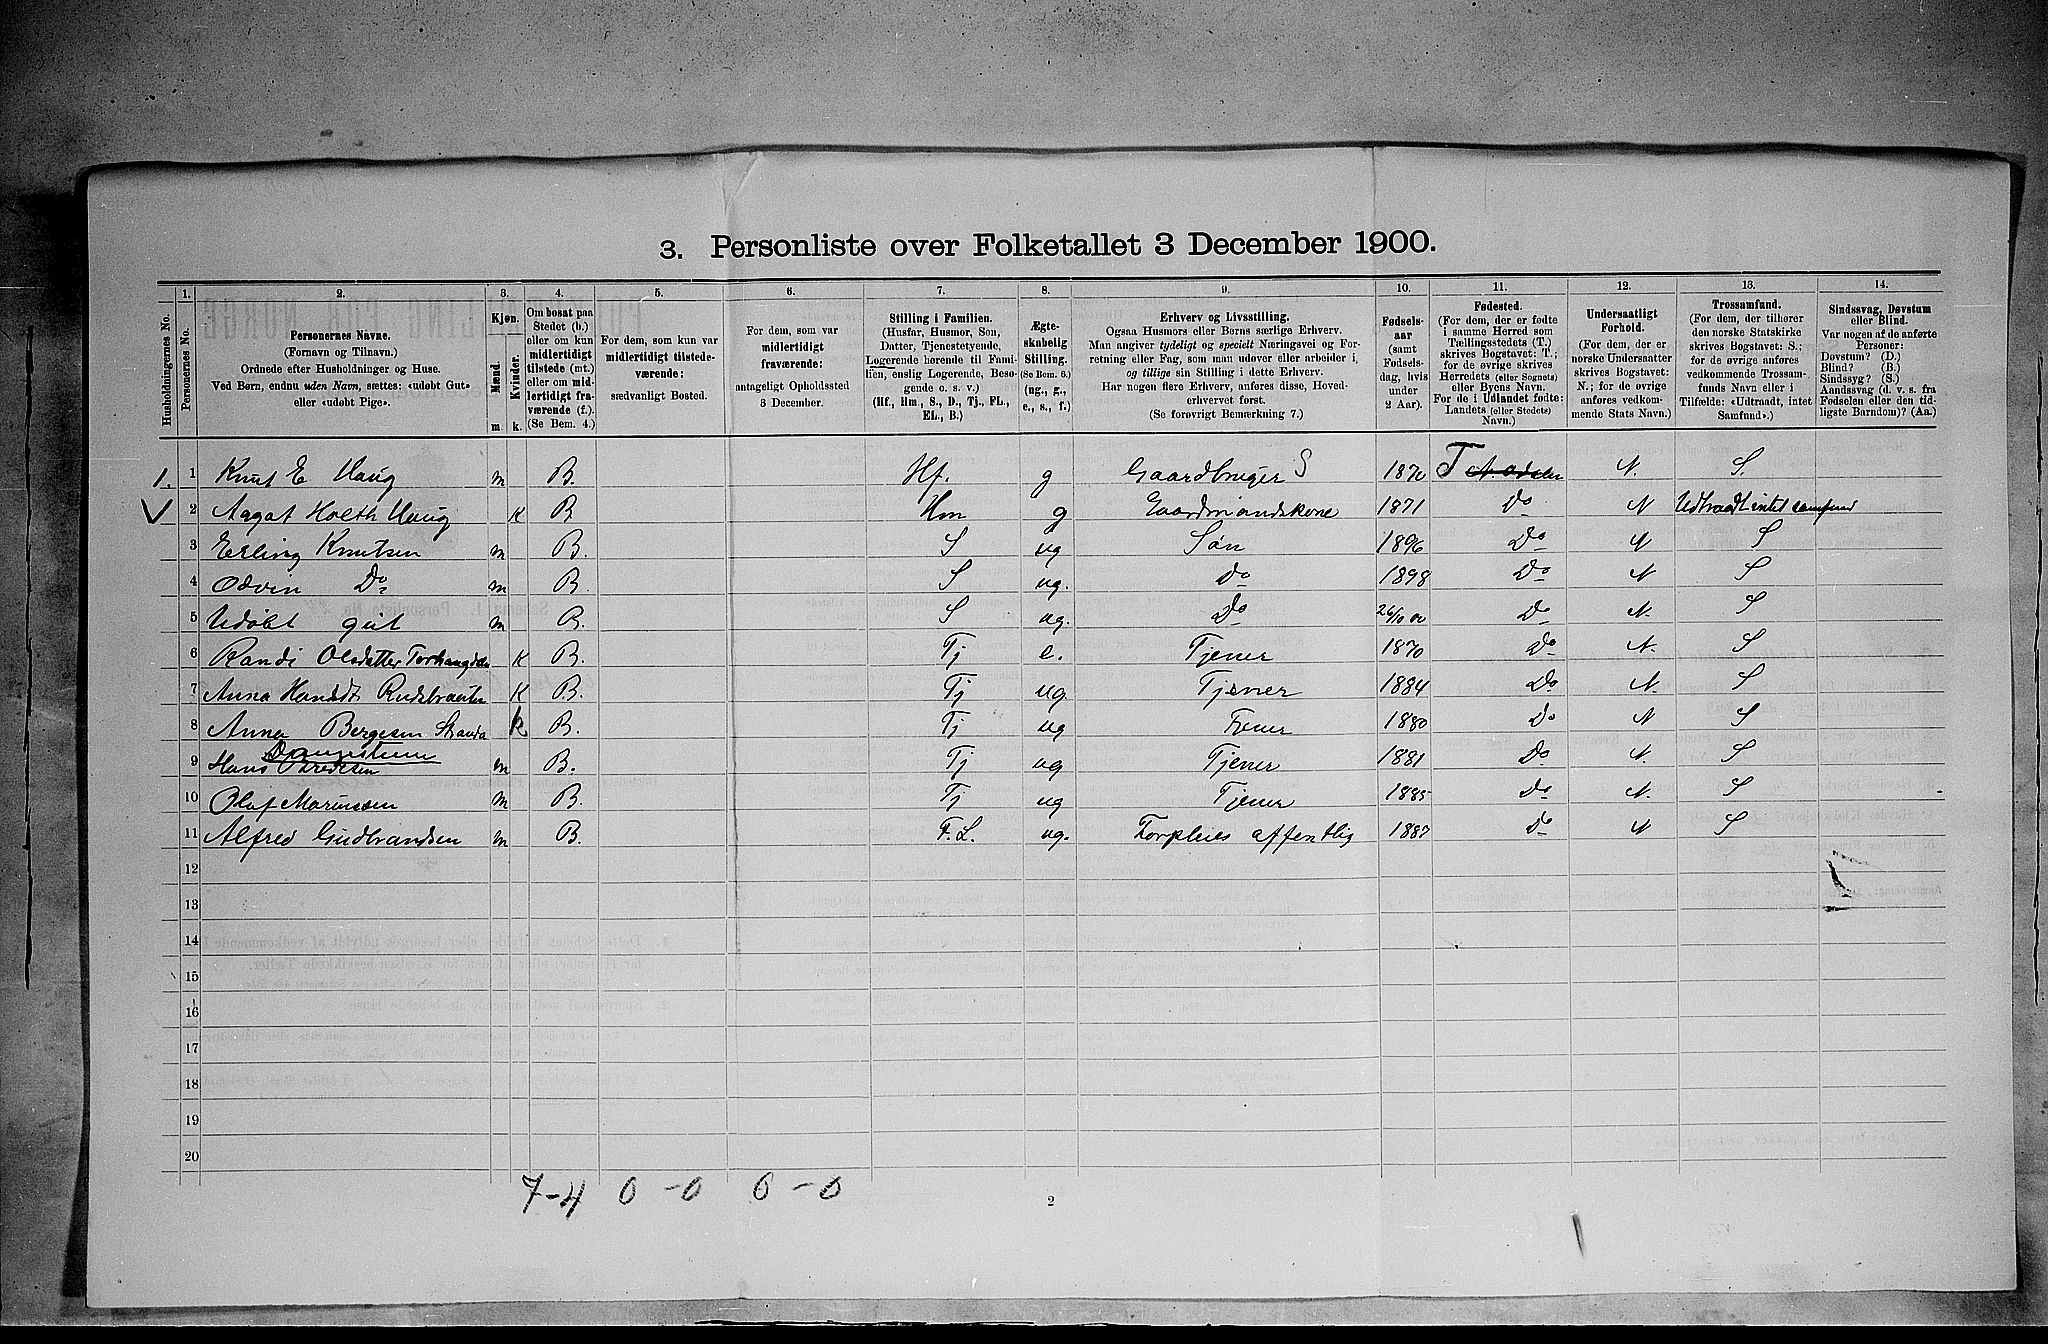 3. Personliste over Folketallet 3 December 1900.
1. 2. 3. 4. 5. 6. 7. 8. 9. 10. 11. 12. 13. 14.
Husholdningernes No.
Personernes No.
Personernes Navne.
(Fornavn og Tilnavn.)
Ordnede efter Husholdninger og Huse.
Ved Børn, endnu uden Navn, sættes: «udøbt Gut»
eller «udøbt Pige».
Kjøn.
Mænd.
Kvinder.
m. k.
Om bosat paa
Stedet (b.)
eller om kun
midlertidigt
tilstede (mt.)
eller om mid-
lertidigt fra-
værende (f.).
(Se Bem. 4.)
For dem, som kun var
midlertidigt tilstede-
værende:
sædvanligt Bosted.
For dem, som var
midlertidigt
fraværende:
antageligt Opholdssted
3 December.
Stilling i Familien.
(Husfar, Husmor, Søn,
Datter, Tjenestetyende,
Logerende hørende til Fami-
lien, enslig Logerende, Besø-
gende o. s. v.)
(Hf., Hm., S., D., Tj., FL.,
EL., B.)
Ægte-
skabelig
Stilling.
(Se Bem. 6.)
(ug., g.,
e., s., f.)
Erhverv og Livsstilling.
Ogsaa Husmors eller Børns særlige Erhverv.
Man angiver tydeligt og specielt Næringsvei og For-
retning eller Fag, som man udøver eller arbeider i,
og tillige sin Stilling i dette Erhverv.
Har nogen flere Erhverv, anføres disse, Hoved-
erhvervet først.
(Se forøvrigt Bemærkning 7.)
Fødsels-
aar
(samt
Fødsels-
dag, hvis
under
2 Aar).
Fødested.
(For dem, der er fødte
i samme Herred som
Tællingsstedets (T.)
skrives Bogstavet: T.;
for de øvrige skrives
Herredets (eller Sognets)
eller Byens Navn.
For de i Udlandet fødte:
Landets (eller Stedets)
Navn.)
Undersaatligt
Forhold.
(For dem, der er
norske Undersaatter
skrives Bogstavet:
N.; for de øvrige
anføres vedkom-
mende Stats Navn.)
Trossamfund.
(For dem, der tilhører
den norske Statskirke
skrives Bogstavet: S.;
for de øvrige anføres
vedkommende Trossam-
funds Navn eller i
Tilfælde: «Udtraadt, intet
Samfund».)
Sindssvag, Døvstum
eller Blind.
Var nogen af de anførte
Personer:
Døvstum? (D.)
Blind? (B.)
Sindssyg? (S.)
Aandssvag (d. v. s. fra
Fødselen eller den tid-
ligste Barndom)? (Aa.)
1. 1 Knut E Haug m B. Hf. g Gaardbruger S 1870 T N. S.
2 Aagot Holth Haug K B Hm g Gaardmandskone 1871 Do N Udtraadt intet samfund
3 Erling Knutsen m B. S ug Søn 1896 Do N S
4 Odvin Do m B. S ug. Do 1898 Do N S
5 Udøbt gut m B. S ug. Do 26/10 00 Do N. S
6 Randi Olsdatter K B. Tj e. Tjener 1870 Do N. S
7 Anna Hansdt Rudsbraaten K B. Tj ug. Tjener 1884 Do N. S
8 Anna Bergesen Stranda k B. Tj ug Tjener 1880 Do N S
9 Hans m B. Tj ug Tjener 1881 Do N. S
10 Olaf Mariussen m B. Tj ug Tjener 1885 Do N. S
11 Alfred Gudbrandsen m B. F.L. ug. Forpleies offentlig 1887 Do N S
12
13
14
15
16
17
18
19
20
7-4 0-0 0-0
2